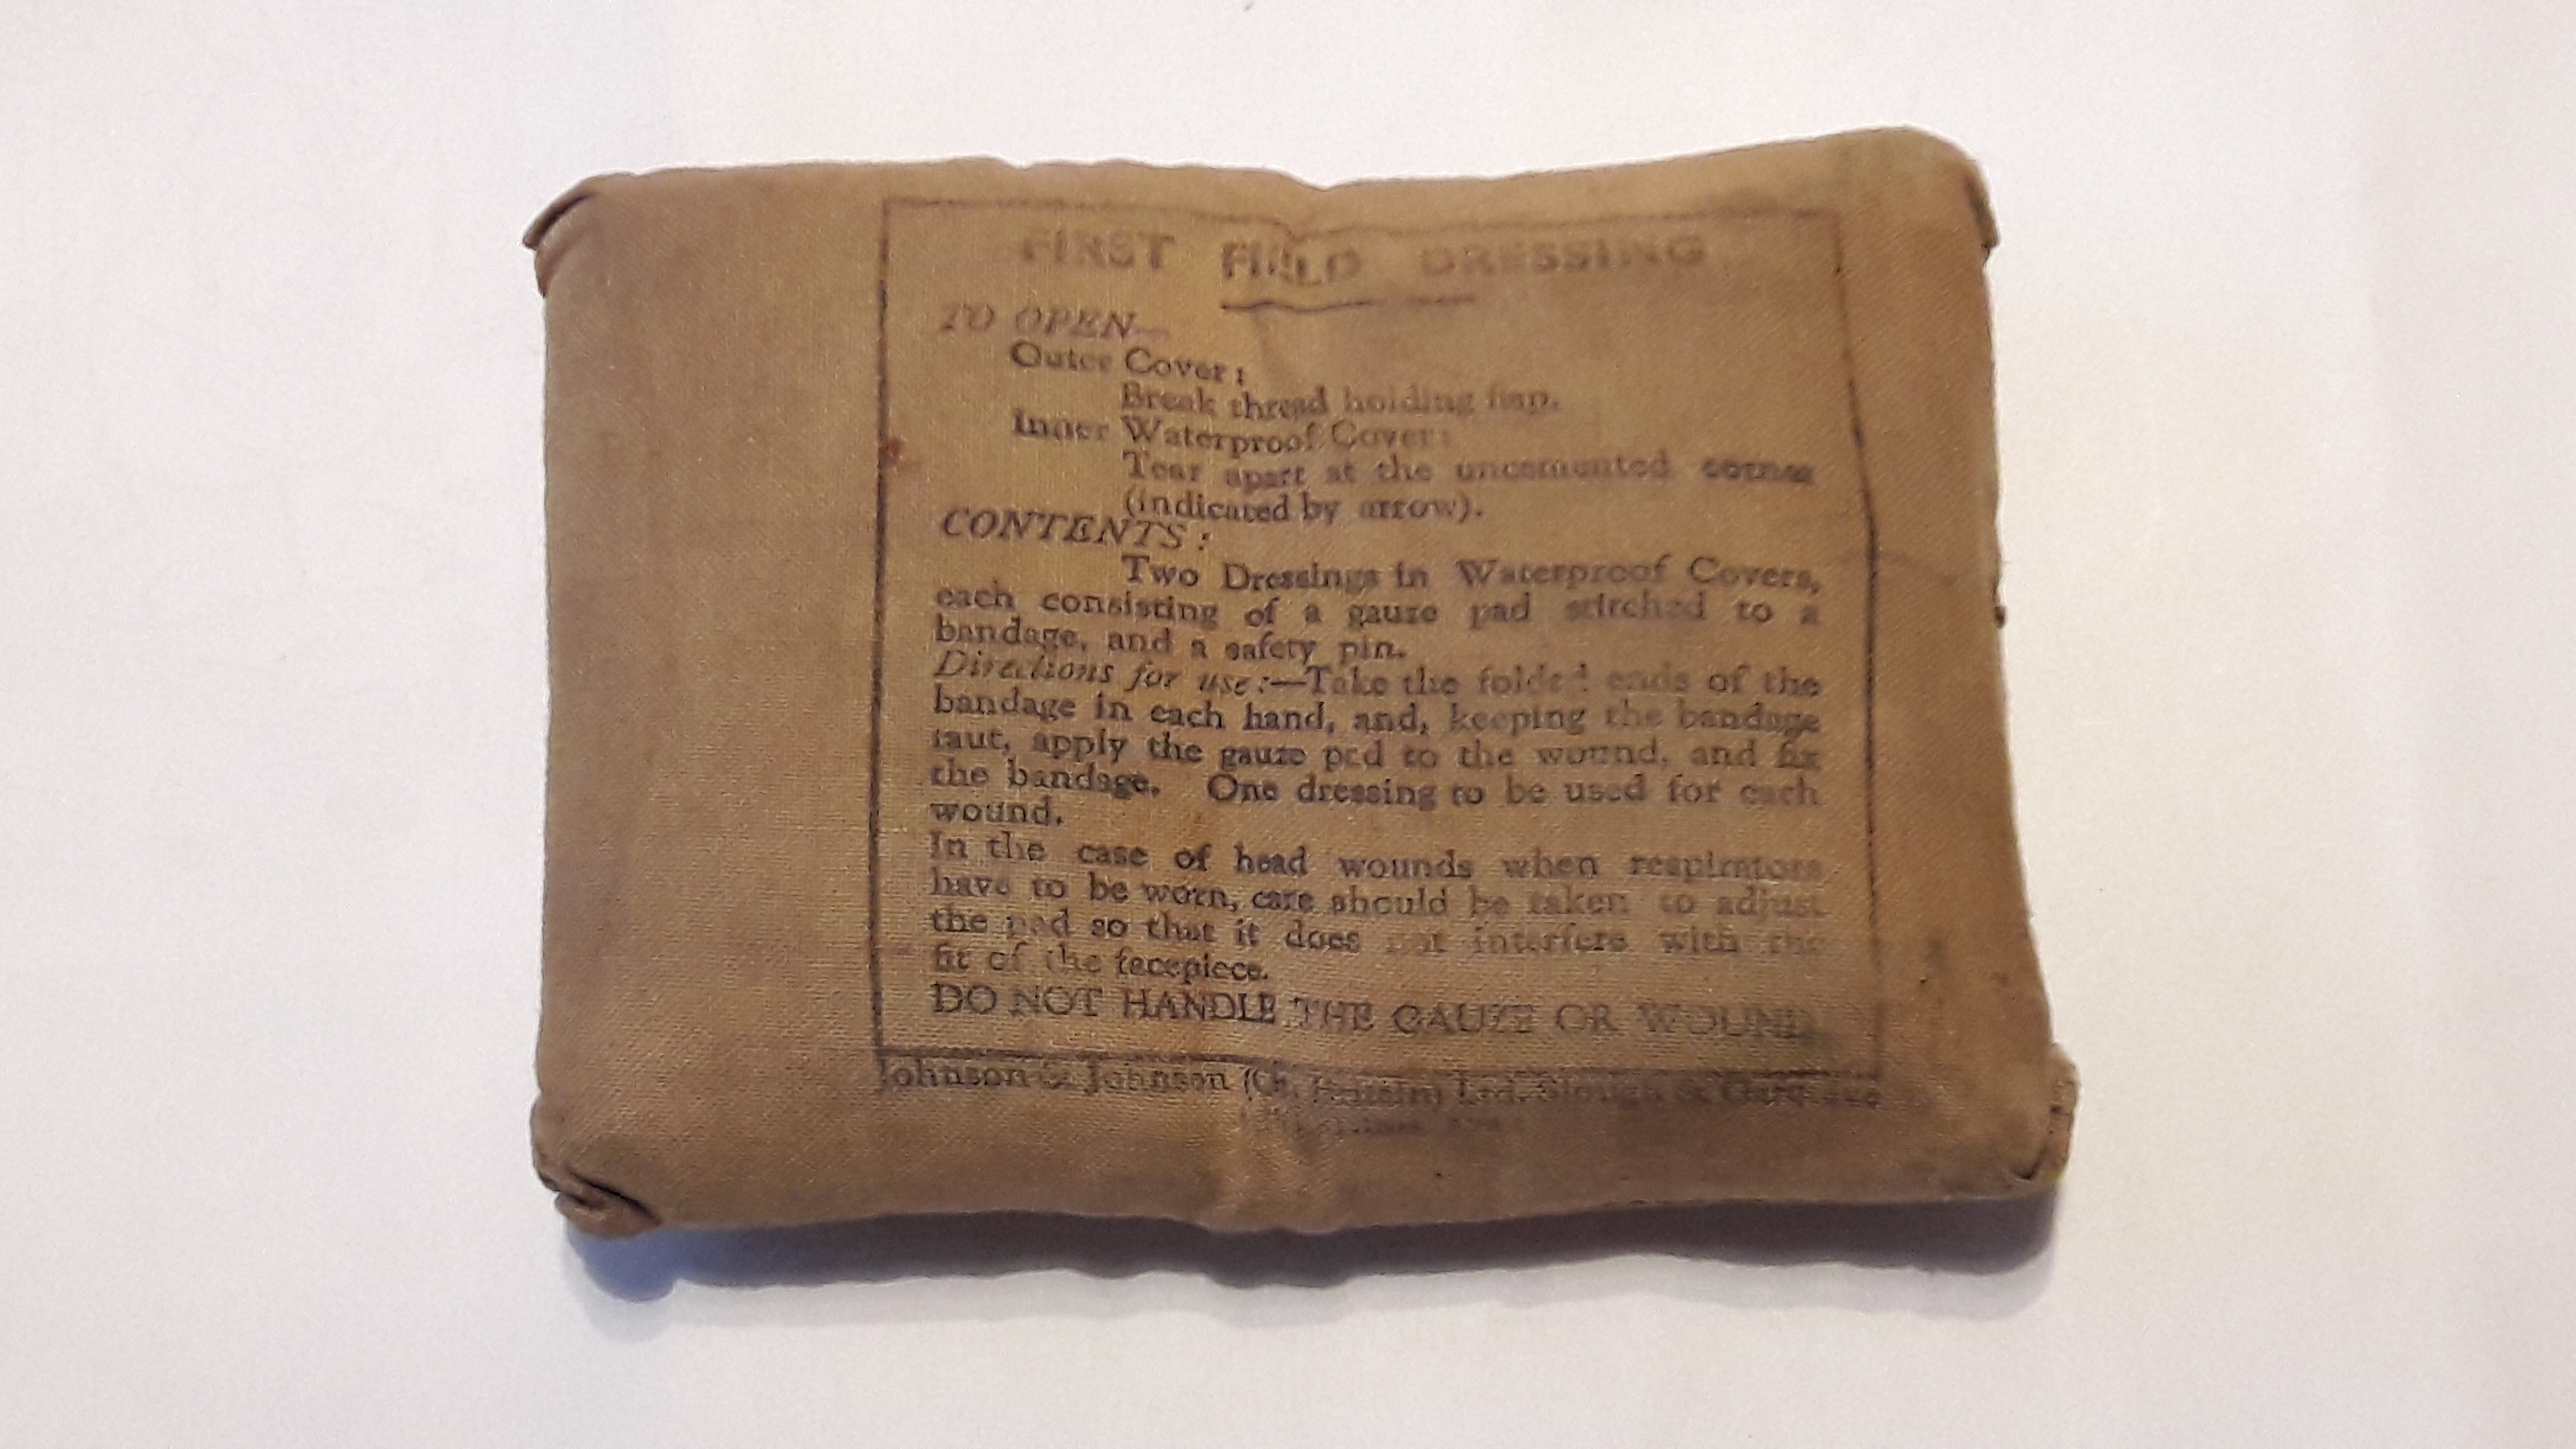 FIRST FIELD DRESSING
TO OPEN—
Outer Cover:
Break thread holding flap.
Inner Waterproof Cover:
Tear apart at the uncemented corner
(indicated by arrow).
CONTENTS:
Two Dressings in Waterproof Covers,
each consisting of a gauze pad stitched to a
bandage, and a safety pin.
Directions for use:—Take the folded ends of the
bandage in each hand, and, keeping the bandage
taut, apply the gauze pad to the wound, and fix
the bandage. One dressing to be used for each
wound.
In the case of head wounds when respirators
have to be worn, care should be taken to adjust
the pad so that it does not interfere with the
fit of the facepiece.
DO NOT HANDLE THE GAUZE OR WOUND
Johnson & Johnson (Gt. Britain) Ltd. Slough & Gargrave